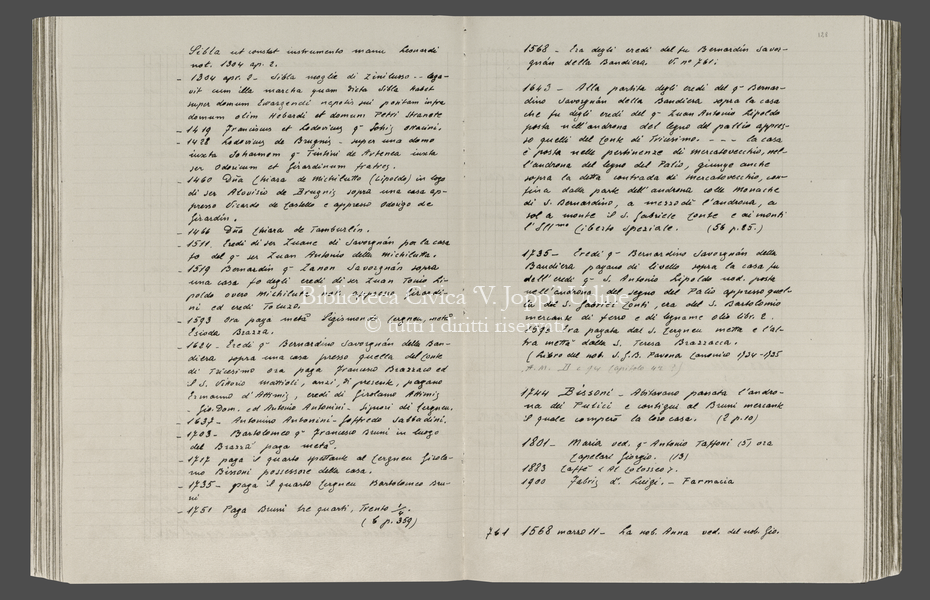 Sibla ut constat instrumento manu Leonardi
not. 1304 ap. 2.
- 1304 apr. 2 - Sibla moglie di Zinilusso -- lega-
vit cum illa marcha quam dicta Sibla habet
super domum Evargendi nepotis sui positam infra
domum olim Hebardi et domum Petri Stranote
- 1419 Franciscus et Lodovicus q-
- 1428 Lodovicus de Brugnis - super una domo
iuxta Iohannem q- Tintini de Artenea iuxta
ser Odoricum et Girardinum fratres.
- 1460 Dña Chiara de Michilutto (Lipoldo) in logo
di ser Alovisio de Brugnis sopra una casa ap-
presso Vicardo de Castello e appresso Odorigo de
Girardin.
- 1466 Dña Chiara de Tamburlin.
- 1511. Eredi di ser Zuane di Savorgnán per la casa
fo del q- ser Zuan Antonio della Michilutta.
- 1519 Bernardin q- Zanon Savorgnán sopra
una casa fo degli eredi di ser Zuan Tonio Li-
poldo overo Michilutta - appresso Girardi-
ni ed eredi
- 1593 ora paga metà Sigismondo Cergneu, metà
Isioda Brazza.
- 1624 - Eredi q- Bernardino Savorgnán della Ban-
diera sopra una casa presso quella del Conte
di Tricesimo ora paga Francesco Brazzaco ed
il S. Vittorio Mattioli, anzi, di presente, pagano
Ermanno d'Attimis, eredi di Girolamo Attimis
- Gio. Dom. ed Antonio Antonini - Signori di Cergneu.
- 1637 - Antonino Antonini - Goffredo Sabbadini.
- 1703 - Bartolomeo q- Francesco Bruni in luogo
del Brazzà paga metà.
- 1717 paga il quarto spettante al Cergneu Girola-
mo Bissoni possessore della casa.
- 1735 - paga il quarto Cergneu Bartolomeo Bru-
ni
- 1751 Paga Bruni tre quarti, Trento 1/4.
(6 p. 359)
1568 - Era degli eredi del fu Bernardin Savor-
gnán della Bandiera. V. n° 761.
1643 - Alla partita degli eredi del q- Bernar-
dino Savorgnán della Bandiera sopra la casa
che fu degli eredi del q- Zuan Antonio Lipoldo
posta nell'androna del legno del pallio appres-
so quelli del Conte di Tricesimo. - - - - la casa
è posta nelle pertinenze di Mercatovecchio, nel-
l'androna del legno del Palio, giunge anche
sopra la detta contrada di Mercatovecchio, con-
fina dalla parte dell'androna colle Monache
di S. Bernardino, a mezzodì l'androna, a
sol a monte il S. Gabriele Conte e ai monti
l'Ill^mo Ciberto Speziale. (56 p. 85.)
1735 - Eredi q- Bernardino Savorgnán della
Bandiera pagano di livello sopra la casa fu
dell'eredi q- S. Antonio Lipoldo nod. posta
nell'androna del segno del Palio appresso quel-
la dei S. Gabriel Conti, era del S. Bartolomio
mercante di ferro e di legname olio libr. 2.
1593 Era pagata dal S. Cergneu metta e l'al-
tra mettà dalla S. Teresa Brazzacca.
(Libro del nob. S. G.B. Pavona Canonico 1734-1735
1744 Bissoni - Abitavano passata l'andro-
na dei Pulici e contigui al Bruni mercante
il quale comperò la loro casa. (2 p. 10)
1801 - Maria ved. q- Antonio Taffoni (5) ora
Capelari Giorgio. (13)
1883 Caffè « Al Colosseo ».
1900 Fabris d.r Luigi. - Farmacia
761 1568 marzo 11 - La nob. Anna ved. del nob. Gio.
Biblioteca Civica 'V. Joppi' Udine
© tutti i diritti riservati